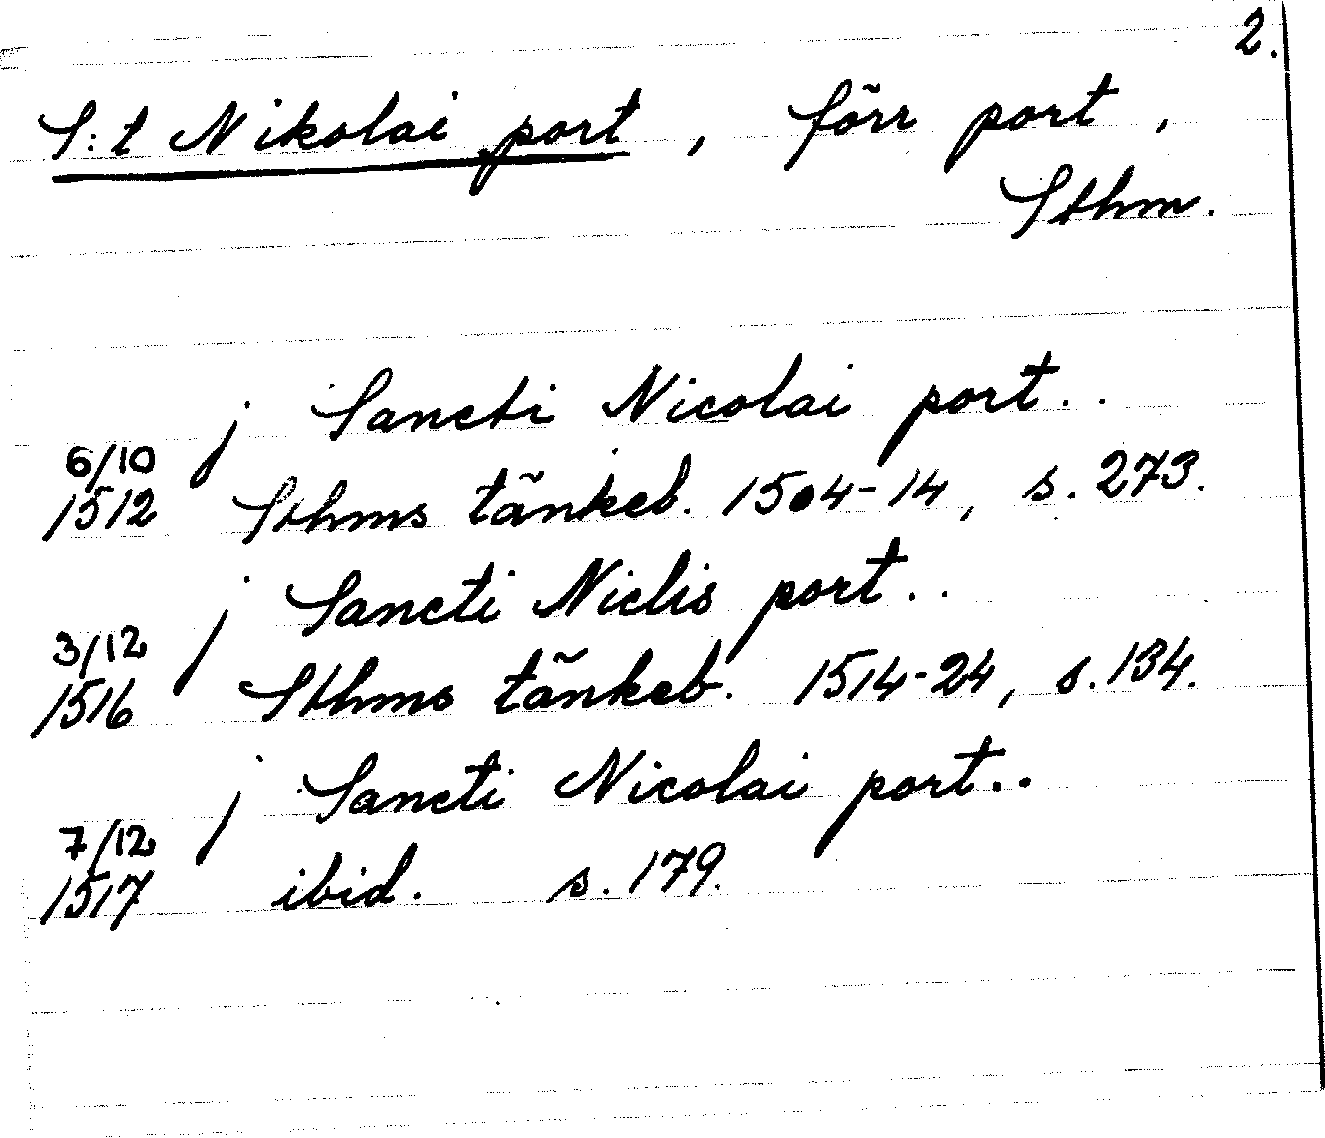 2.
S:t Nikolai port, förr port,
Sthm.
j Sancti Nicolai port..
6/10
1512 Sthms tänkeb. 1504-14, s. 273.
j Sancti Niclis port..
3/12
1516 Sthms tänkeb. 1514-24, s. 134.
j Sancti Nicolai port..
7/12
1517 ibid. s. 179.